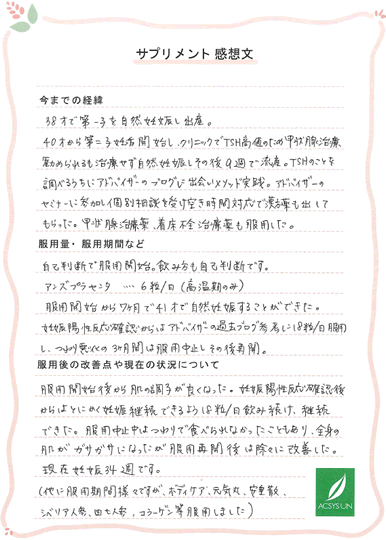 サプリメント 感想文
今までの経緯
38才で第一子を自然妊娠し出産。
40才から第二子妊活開始し、クリニックでTSH高値のため甲状腺治療
勧められるも治療せず自然妊娠しその後9週で流産。TSHのことを
調べるうちにアドバイザーのブログに出会いメソッド実践。アドバイザーの
セミナーに参加し個別相談を受け空き時間対応で漢方薬も出して
もらった。甲状腺治療薬、着床不全治療薬も服用した。
服用量・服用期間など
自己判断で服用開始。飲み方も自己判断です。
アンズプラセンタ ‥‥ 6粒/日(高温期のみ)
服用開始から7ヶ月で41才で自然妊娠することができた。
妊娠陽性反応確認からはアドバイザーの過去ブログ参考に18粒/日服用
し、つわり悪化の3ヶ月間は服用中止しその後再開。
服用後の改善点や現在の状況について
服用開始後から肌の調子が良くなった。妊娠陽性反応確認後
からはとにかく妊娠継続できるよう18粒/日飲み続け、継続
できた。服用中止中はつわりで食べられなかったこともあり、全身の
肌がガサガサになったが服用再開後は徐々に改善した。
現在妊娠34週です。
(他に服用期間様々ですが、ボディケア、元気丸、安重散、
シベリア人参、田七人参、コラーゲン等服用しました)
ACSYS UN